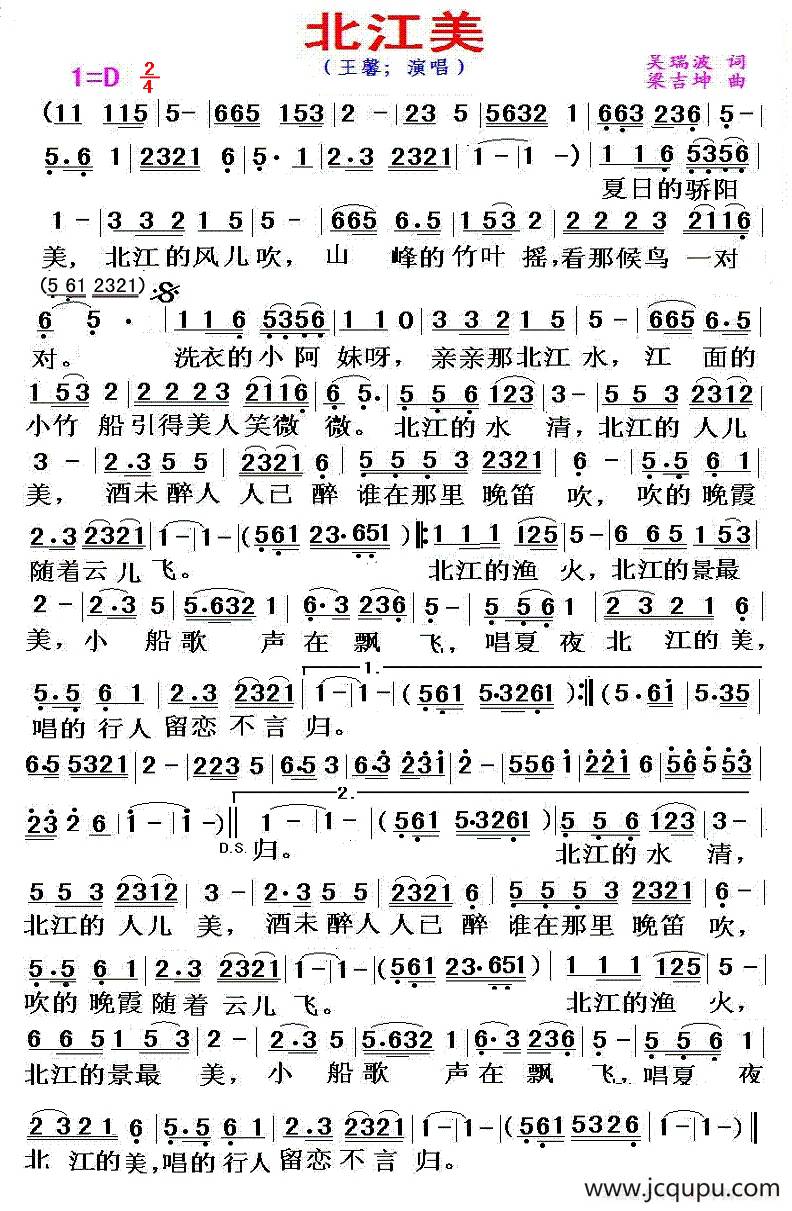 北江美
（王馨；演唱）
吴瑞波 词
1=D 2/4
梁吉坤 曲
(11 115|5-|665 153|2-|23 5|5632 1|663 236|5-|
5.6 1|2321 6|5·1|2.3 2321|1-|1-)|1 1 6 5356|
夏日的骄阳
1-|3 3 2 1 5|5-|665 6.5|1 53 2|2 2 2 3 2116|
美，北江的风儿吹，山 峰的竹叶 摇，看那候鸟 一对
(5 61 2321)
6 5 ·|1 1 6 5356|1 1 0|3 3 2 1 5|5-|665 6.5|
对。 洗衣的小阿 妹呀，亲亲那北江水，江 面的
1 53 2|2 2 2 3 2116|6 5.|5 5 6 123|3-|5 5 3 2312|
小竹 船引得美人笑微微。北江的水 清，北江的人儿
3-|2.3 5 5|2321 6|5 5 5 3 2321|6-|5.5 6 1|
美， 酒未醉人 人已醉 谁在那里晚笛 吹，吹的晚霞
2.3 2321|1-|1-|(561 23·651)|:1 1 1 125|5-|6 65 1 53|
随着云儿飞。 北江的渔 火，北江的景最
2-|2.3 5|5.632 1|6·3 236|5-|5 5 6 1|2 321 6|
美，小 船歌 声在飘 飞，唱夏夜北 江的美，
1.
5.5 6 1|2.3 2321|1-|1-|(561 5·3261):|(5·61|5·35|
唱的行人留恋不言归。
6·5 5321|2-|223 5|6·5 3|6·3 231|2-|556 1|221 6|56553|
2.
23 2 6|1-|1-)||1-|1-|(561 5·3261)|5 5 6 123|3-|
D.S. 归。 北江的水 清，
5 5 3 2312|3-|2·3 5 5|2321 6|5 5 5 3 2321|6-|
北江的人儿 美，酒未醉人人已醉 谁在那里晚笛 吹，
5.5 6 1|2.3 2321|1-|1-|(561 23·651)|1 1 1 125|5-|
吹的晚霞随着云儿飞。 北江的渔 火，
6 6 5 1 53|2-|2.3 5|5.632 1|6·3 236|5-|5 5 6 1|
北江的景最 美，小 船歌 声在飘 飞，唱夏 夜
2 321 6|5.5 6 1|2.3 2321|1-|1-|(561 5326|1-)||
北 江的美，唱的行人留恋不言归。
www.jcqupu.com